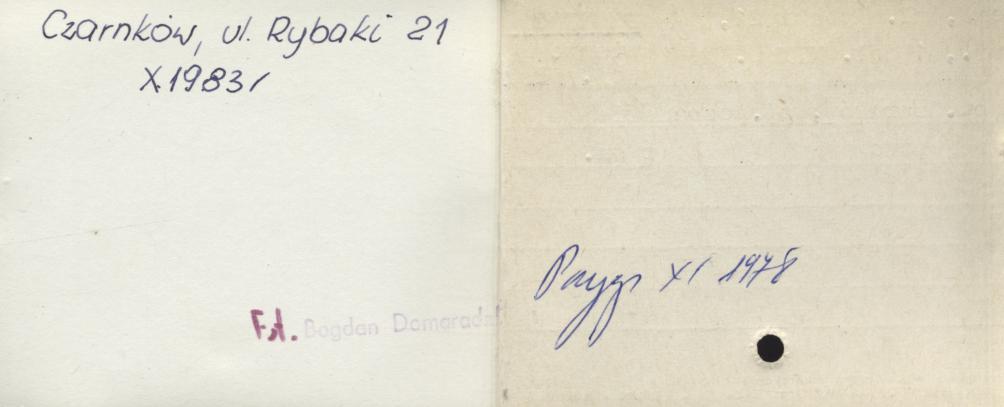 Czarnków, ul. Rybaki 21
X.1983r
Fot. Bogdan Domaradz
XI 1978